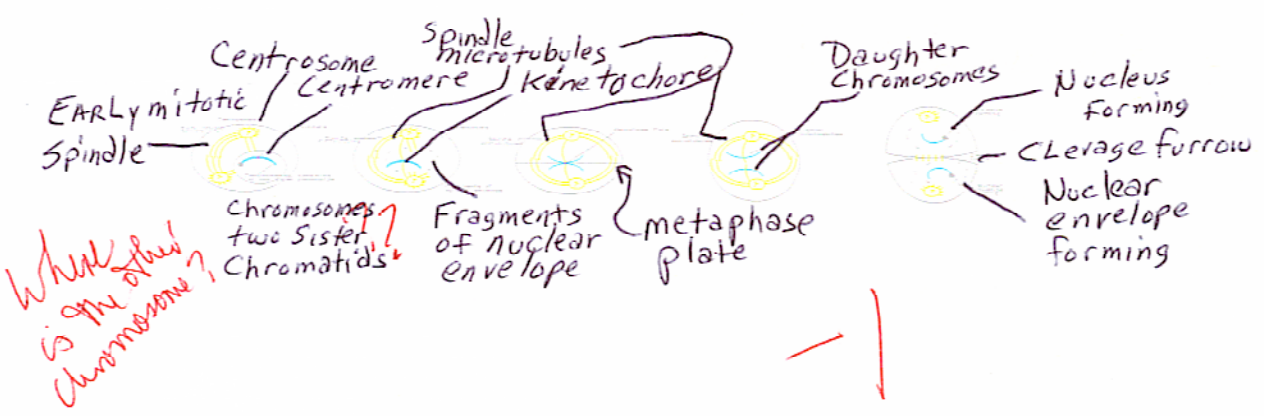 Centrosome
Centromere
EARLy mitotic
Spindle
Spindle
microtubules
Kinetochore
Daughter
Chromosomes
Nucleus
forming
CLevage furrow
Nuclear
envelope
forming
Chromosomes,
two Sister
Chromatids
??
Fragments
of nuclear
envelope
metaphase
plate
Where
is the other
chromosome?
-1